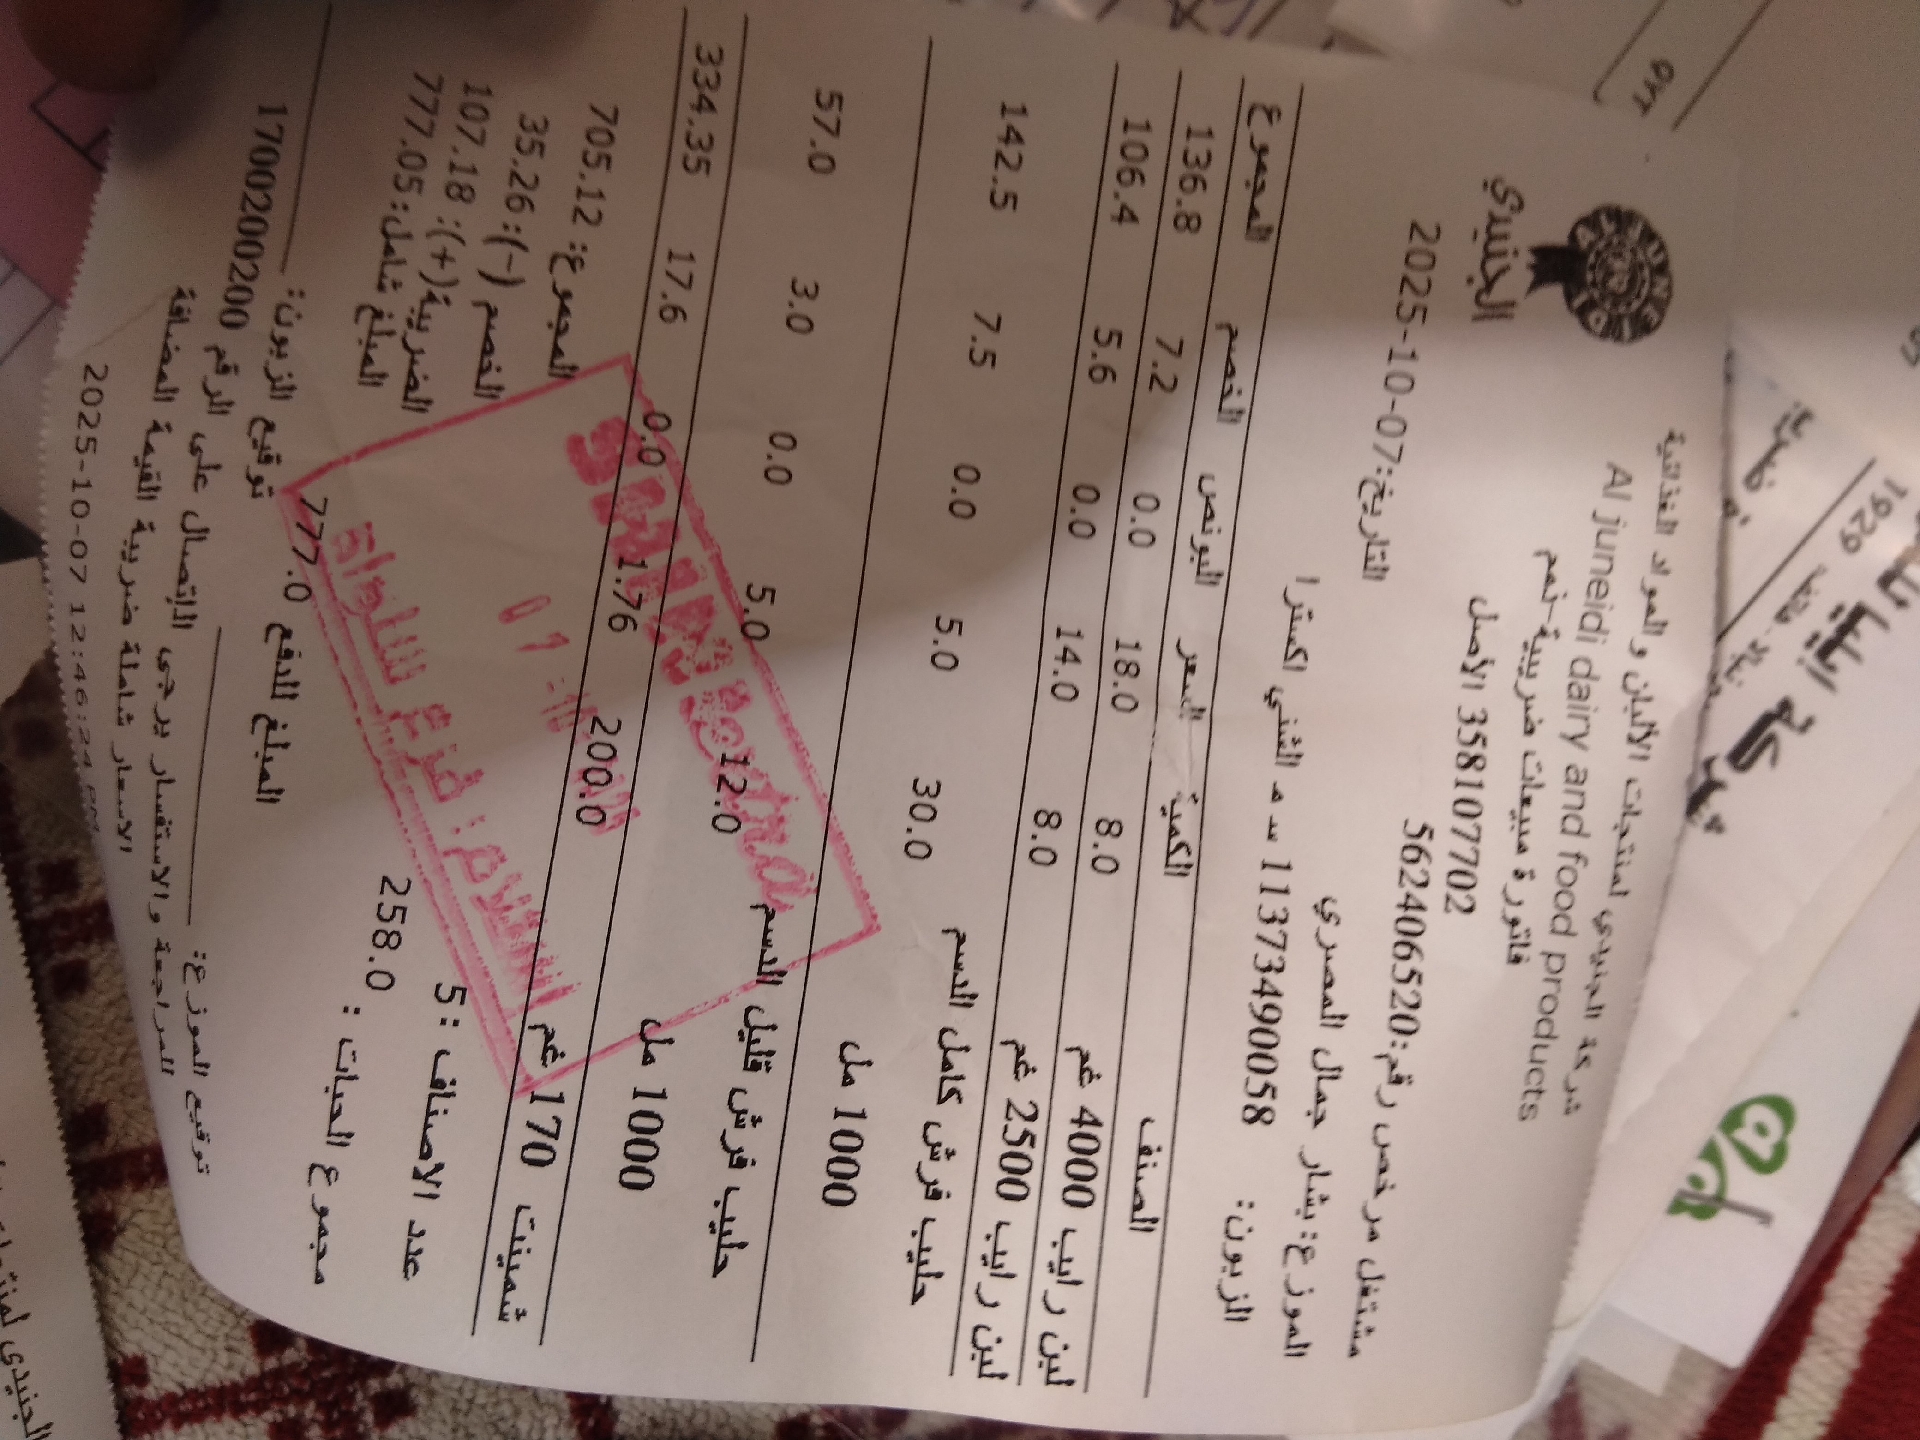 الجنيدي
شركة الجنيدي لمنتجات الألبان و المواد الغذائية
Al juneidi dairy and food products
فاتورة مبيعات ضريبية-نعم
358107702 الأصل
مشتغل مرخص رقم:562406520 التاريخ:2025-10-07
الموزع: بشار جمال المصري
الزبون: 11373490058 سمد الشني اكسترا 1
الصنف الكمية السعر البونص الخصم المجموع
لبن رايب 4000 غم 8.0 18.0 0.0 7.2 136.8
لبن رايب 2500 غم 8.0 14.0 0.0 5.6 106.4
حليب فرش كامل الدسم 1000 مل 30.0 5.0 0.0 7.5 142.5
حليب فرش قليل الدسم 1000 مل 12.0 5.0 0.0 3.0 57.0
شمينت 170 غم 200.0 1.76 0.0 17.6 334.35
عدد الاصناف :5
مجموع الحبات : 258.0
المجموع: 705.12
الخصم (-): 35.26
الضريبة(+): 107.18
المبلغ شامل: 777.05
المبلغ للدفع 777.0
توقيع الموزع:
توقيع الزبون:
للمراجعة والاستفسار يرجى الاتصال على الرقم 1700200200
الاسعار شاملة ضريبة القيمة المضافة
2025-10-07 12:46:24 PM